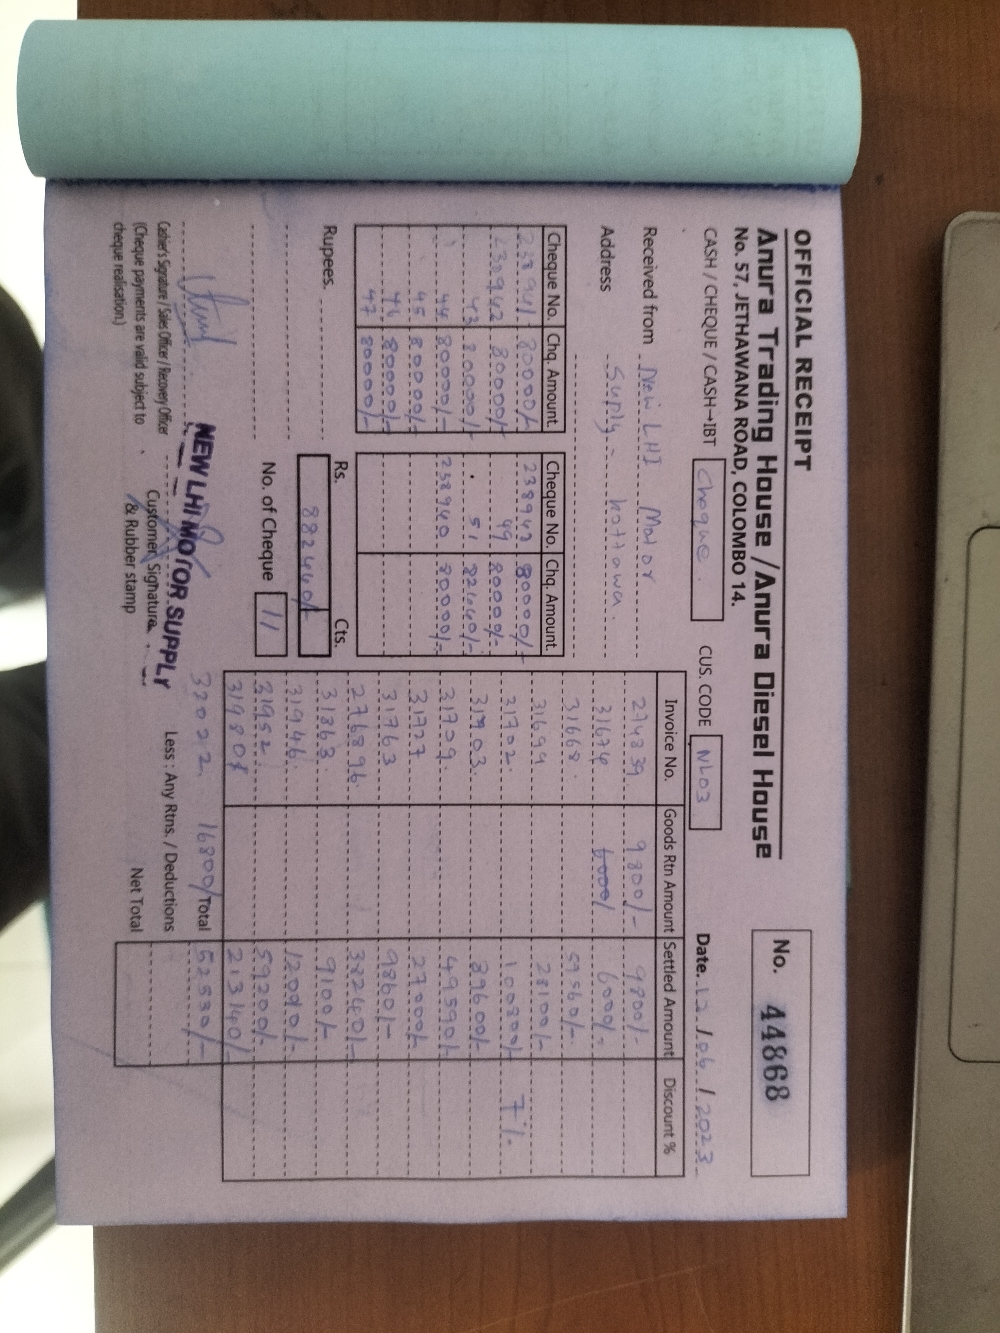 OFFICIAL RECEIPT
Anura Trading House / Anura Diesel House
No. 57, JETHAWANA ROAD, COLOMBO 14.
No. 44868
CASH / CHEQUE / CASH-IBT Cheque CUS. CODE NL03 Date. 12 / 06 / 2023
Received from New LHI Motor
Address Supply - kottawa.
Cheque No. Chq. Amount
238941 - 80000/-
238942 80000/-
43 80000/-
44 80000/-
45 80000/-
46 80000/-
47 80000/-
Cheque No. Chq. Amount.
80000/-
49 80000/-
51 82440/-
238940 80000/-
Rupees.
Rs. Cts.
882440/-
No. of Cheque 11
Invoice No. Goods Rtn Amount Settled Amount Discount %
274839 9800/- 9800/-
31674 6000/- 6000/-
31668. 59560/-
31694 28100/-
31702. 100800/- 7%
31703. 39600/-
31709 49590/-
31727 27000/-
31763 9860/-
276896 38240/-
31863 9100/-
31946. 12000/-
31952. 59200/-
213140/-
32022 16800/ Total 52530/-
Less : Any Rtns. / Deductions
Net Total
Cashier's Signature / Sales Officer / Recovery Officer
(Cheque payments are valid subject to
cheque realisation.)
NEW LHI MOTOR SUPPLY
Customer Signature
& Rubber stamp